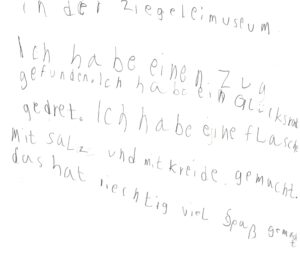 in der Ziegeleimuseum.
Ich habe einen Zug
gefunden. Ich habe ein Glücksrad
gedret. Ich habe eine flasch
mit salz und mit kreide gemacht.
das hat riechtig viel Spaß gemacht